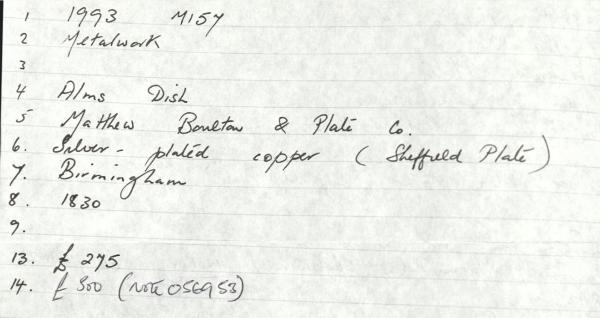 1 1993 M157
2 Metalwork
3
4 Alms Dish
5 Matthew Boulton & Plate Co.
6. Silver-plated copper (Sheffield Plate)
7. Birmingham
8. 1830
9.
13. £ 275
14. £ 300 (Note 056953)